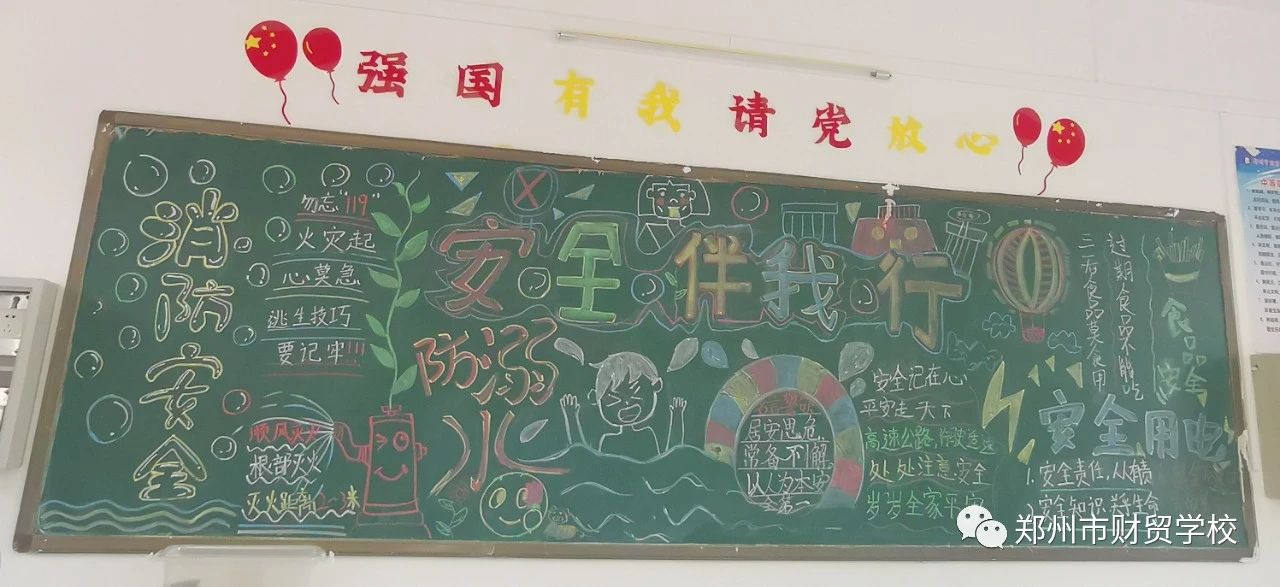 强国有我请党放心
消防安全
勿忘"119"
火灾起
心莫急
逃生技巧
要记牢!!!
顺风灭火
根部灭火
灭火距离2~3米
安全伴我行
防溺水
居安思危,
常备不懈
以人为本安
全第一
安全记在心
平安走天下
高速公路
处处注意安全
岁岁全家平安
过期食品不能吃
三无食品莫食用
食品安全
安全用电
1.安全责任,从
安全知识
郑州市财贸学校